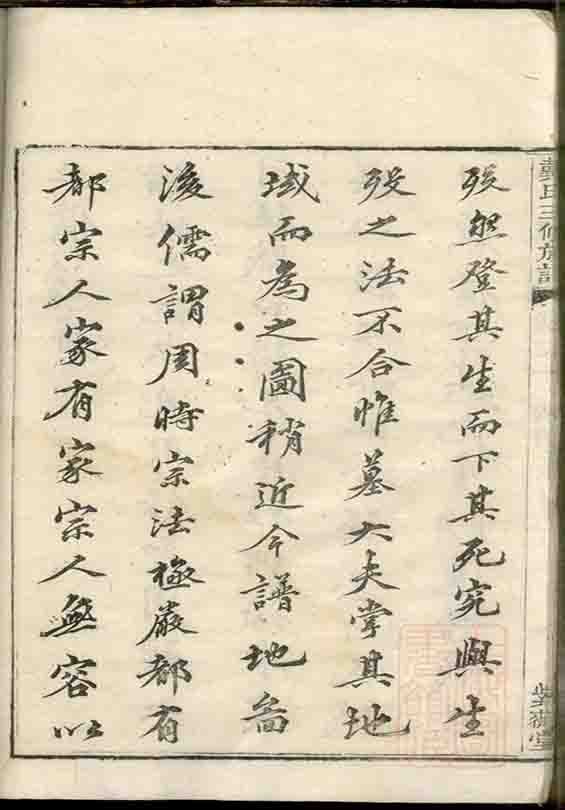 戴氏三修族譜
紫湖堂
歿然登其生而下其死究與生
歿之法不合惟墓大夫掌其地
域而為之圖稍近今譜地畨
後儒謂周時宗法極嚴都有
都宗人家有家宗人無容以